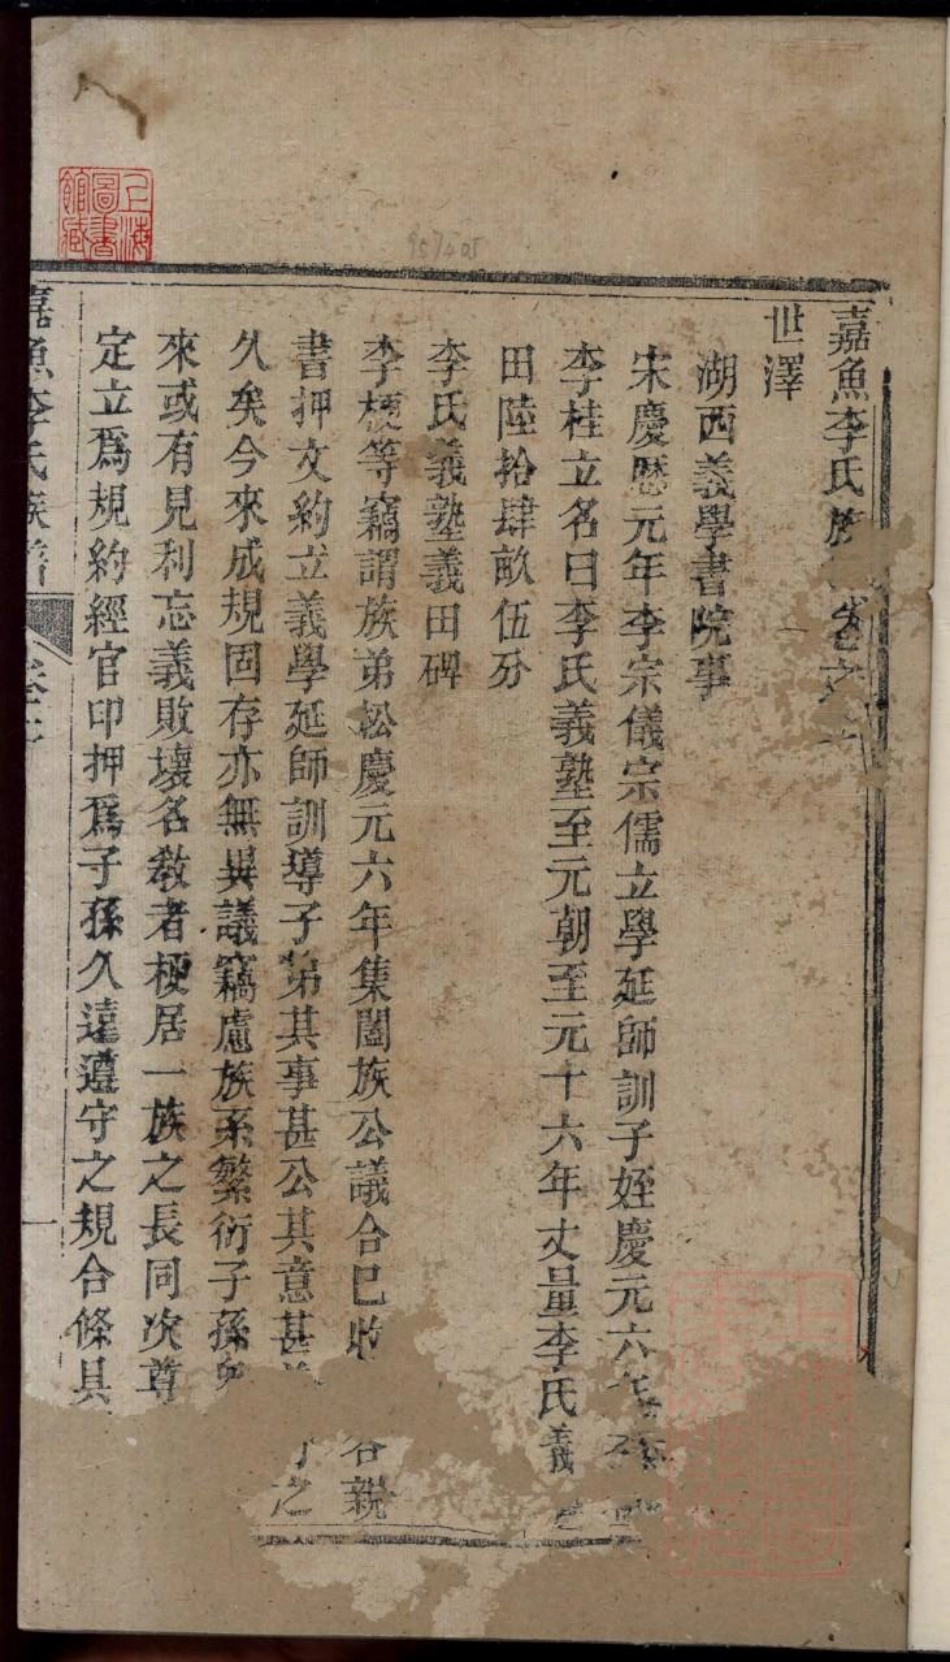 嘉魚李氏族卷之
世澤
湖西義學書院事
宋慶歷元年李宗儀宗儒立學延師訓子姪慶元六年
李桂立名曰李氏義塾至元朝至元十六年丈量李氏義
田陸拾肆畝伍分
李氏義塾義田碑
李梗等竊謂族弟松慶元六年集闔族公議合已收各親
書押文約立義學延師訓導子弟其事甚公其意甚之
久矣今來成規固存亦無異議竊慮族系繁衍子孫
來或有見利忘義敗壞名敎者梗居一族之長同次尊
定立爲規約經官印押爲子孫久遠遵守之規合條具
嘉魚李氏族譜
一
上海圖書館藏
957405